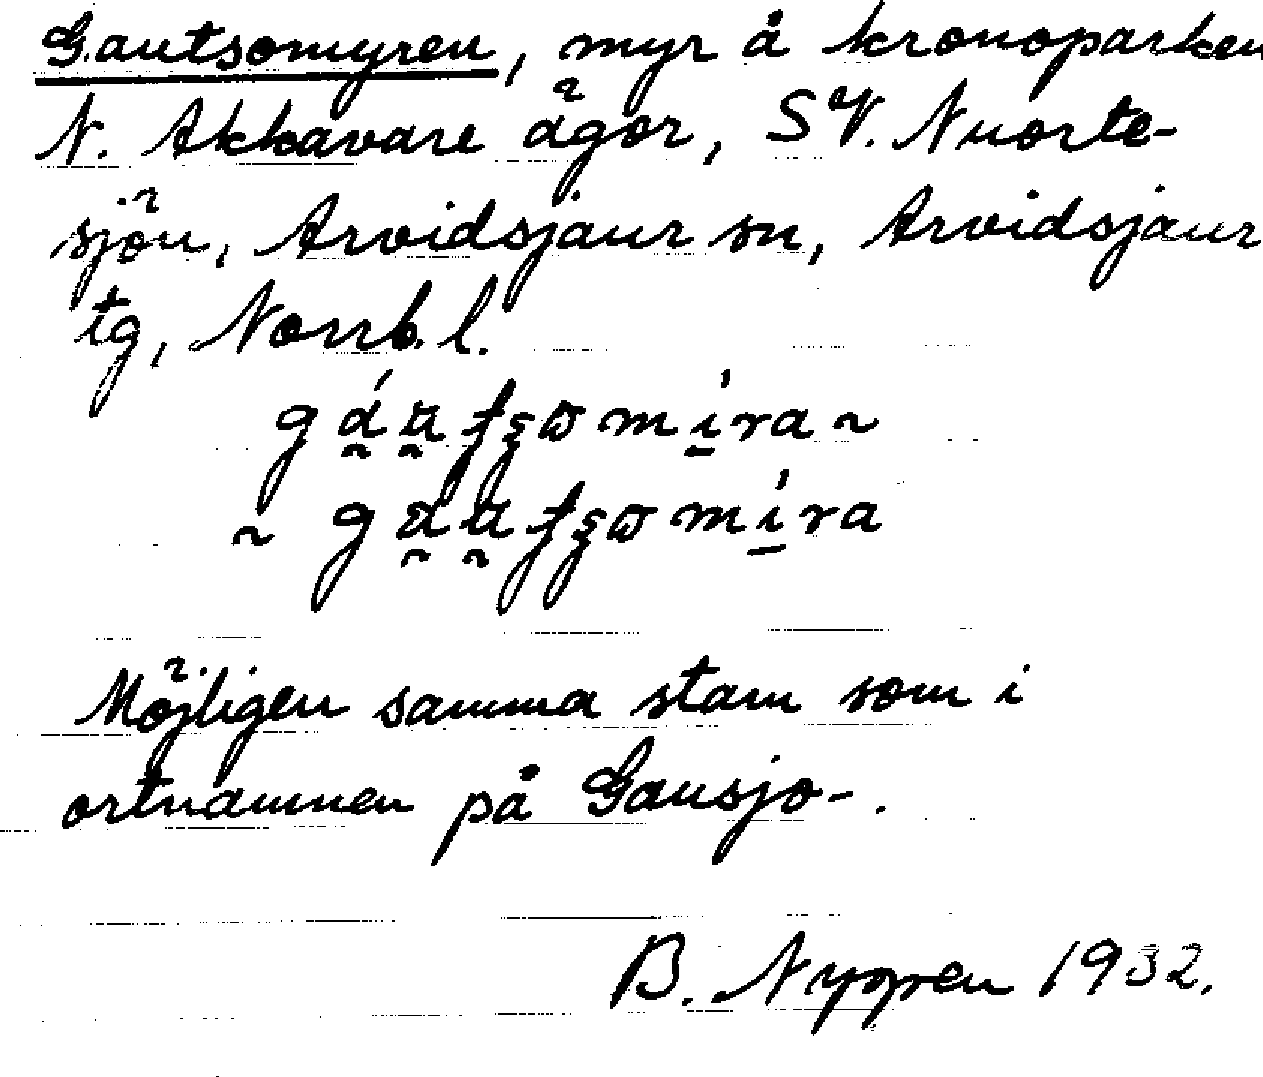 Gautsomyren, myr å kronoparken
N. Akkavare ägor, SV. Nuorte-
sjön, Arvidsjaur sn, Arvidsjaur
tg, Norrb. l.
Möjligen samma stam som i
ortnamnen på Gausjo-.
B. Nygren 1932.